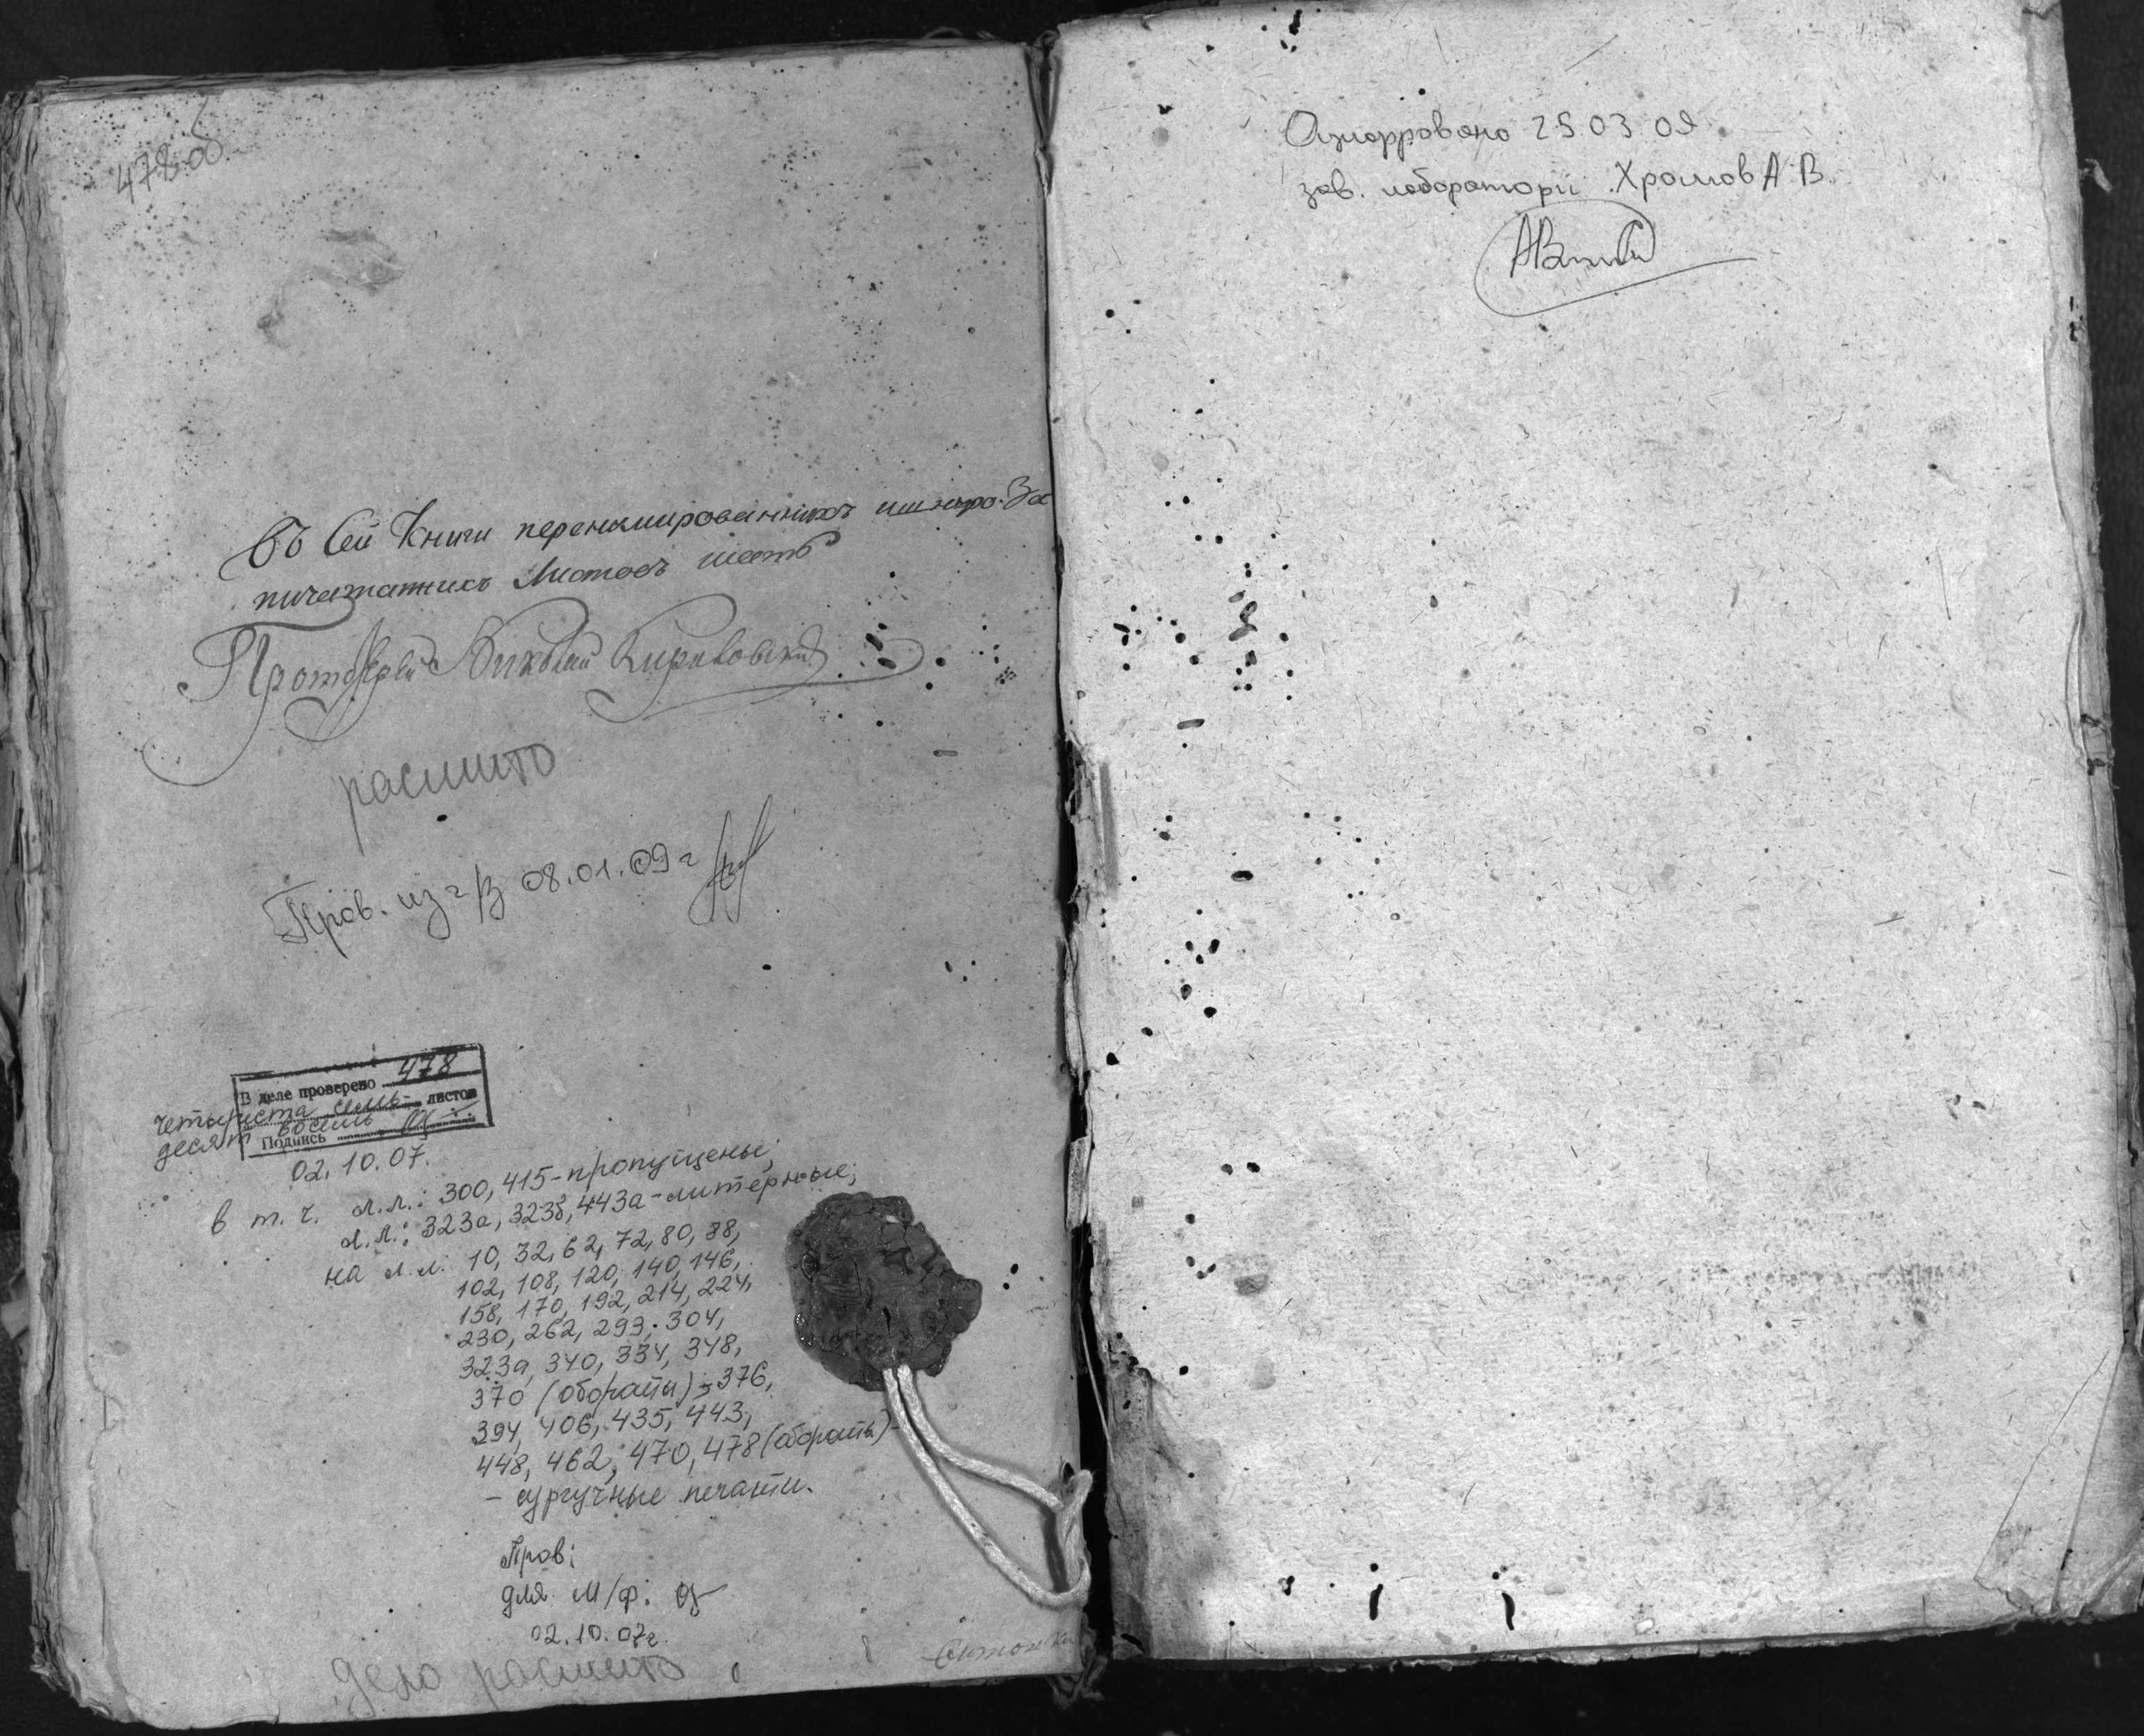 478об.
Въ сей Книги перенумированныхъ ишнуро-За
пичатанныхъ Листовъ шесть
Протоіерей Николай
расшито
Пров. из г/з 08.01.09 г
В деле проверено 478
четыреста семь- листов
десят восемь
Подпись
02.10.07.
в т.ч. л.л.: 300, 415-пропущены;
л.л.: 323а, 323б, 443а-литерные;
на л.л. 10, 32, 62, 72, 80, 88,
102, 108, 120, 140, 146,
158, 170, 192, 214, 224,
230, 262, 293, 304,
323а, 340, 334, 348,
370 (обораты), 376,
394, 406, 435, 443,
448, 462, 470, 478 (обораты)-
- сургучные печати.
Пров:
для м/ф:
02.10.07г.
дело расшито
Оцифровано 25 03 09
зав. лаборатори Хромов А В.